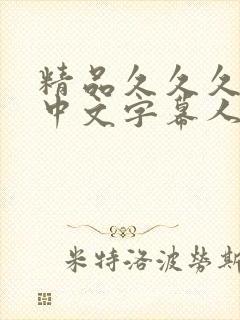 精品久久久
中文字幕人
米特洛波勞斯